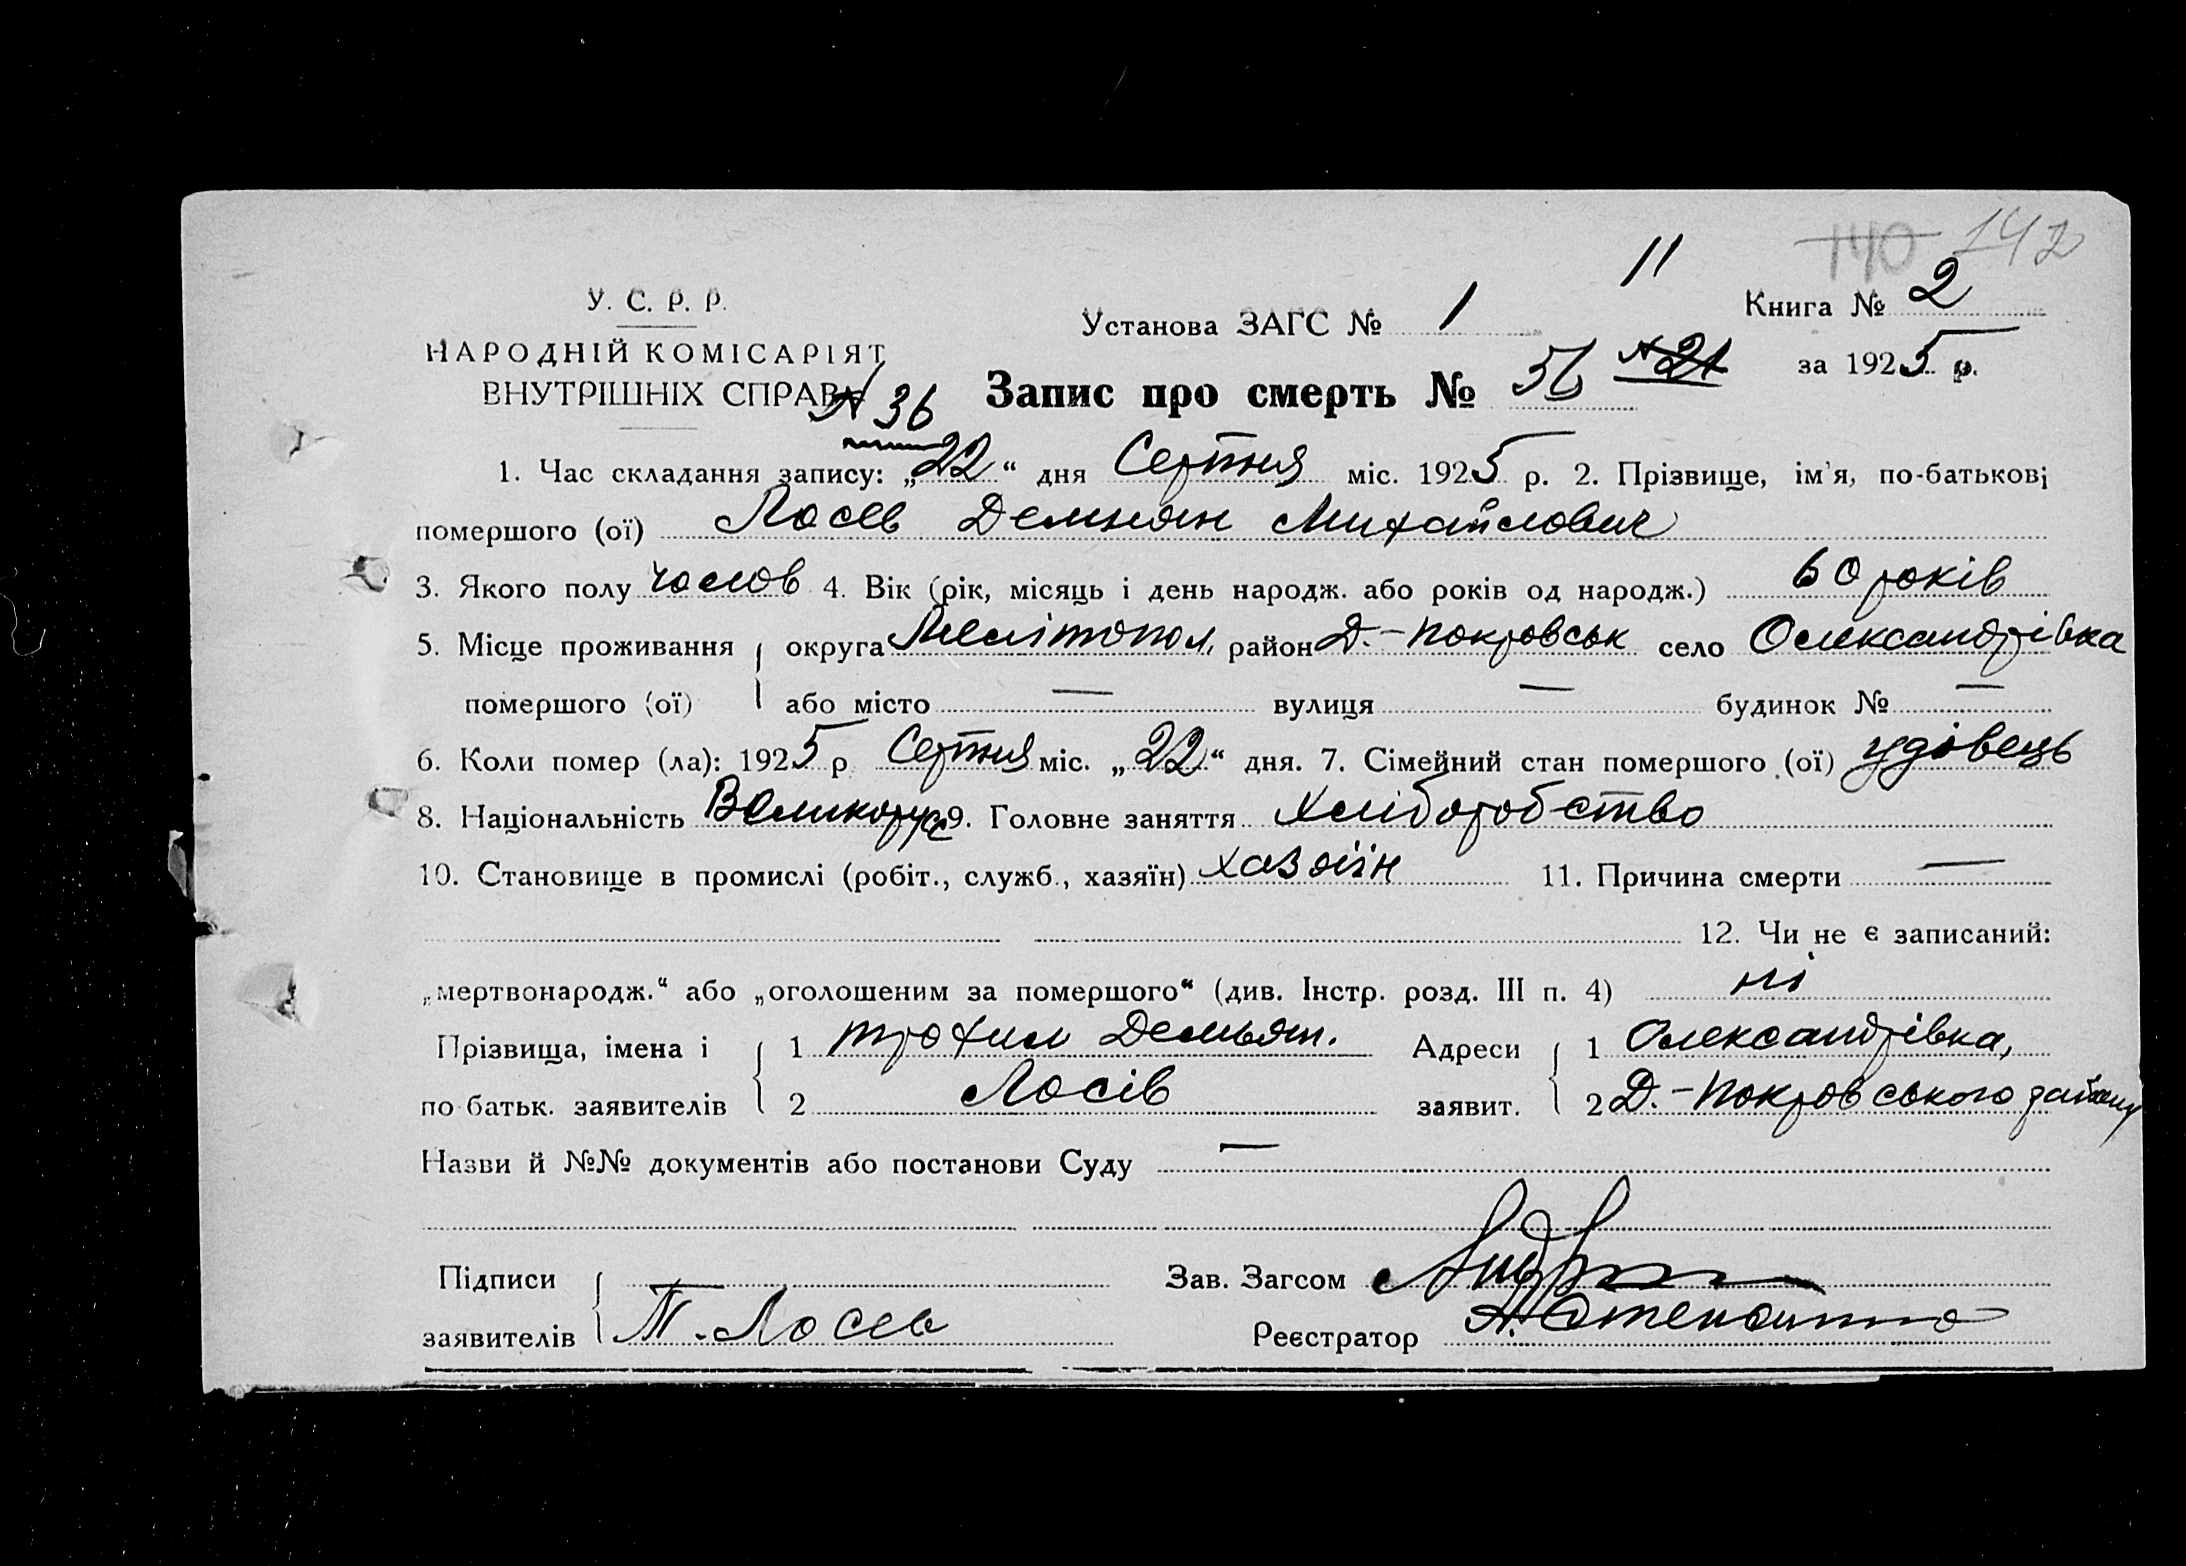 140 142
11
У. С. Р. Р.
Установа ЗАГС № 1
Книга № 2
НАРОДНІЙ КОМІСАРІЯТ
ВНУТРІШНІХ СПРАВ
за 1925 р.
№ 36
Запис про смерть № 56 № 21
1. Час складання запису: „22“ дня Серпня міс. 1925 р. 2. Прізвище, ім'я, по-батькові
помершого (ої) Лосєв Демнян Михайлович
3. Якого полу чолов 4. Вік (рік, місяць і день народж. або років од народж.) 60 років
5. Місце проживання округа Мелітопол, район Д.-Покровськ село Олександрівка
помершого (ої) або місто — вулиця — будинок № —
6. Коли помер (ла): 1925 р. Серпня міс. „22“ дня. 7. Сімейний стан помершого (ої) удівець
8. Національність Великорус 9. Головне заняття Хліборобство
10. Становище в промислі (робіт., служб., хазяїн) хазяїн 11. Причина смерти —
12. Чи не є записаний:
„мертвонародж.“ або „оголошеним за помершого“ (див. Інстр. розд. III п. 4) ні
Прізвища, імена і 1 Трохим Демьян. Адреси 1 Олександрівка,
по батьк. заявителів 2 Лосів заявит. 2 Д.-Покровського району
Назви й №№ документів або постанови Суду —
Підписи
Зав. Загсом
заявителів Т. Лосев
Реєстратор